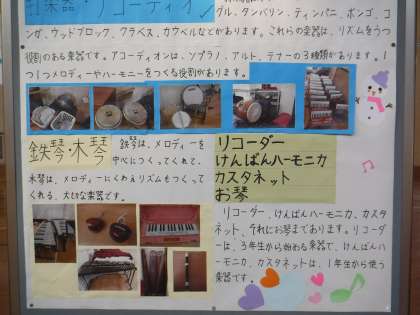 打楽器・アコーディオン
グル、タンバリン、ティンパニ、ボンゴ、コ
ンガ、ウッドブロック、クラベス、カウベルなどがあります。これらの楽器は、リズムをうつ
役割のある楽器です。アコーディオンは、ソプラノ、アルト、テナーの3種類があります。1
つ1つメロディーやハーモニーをつくる役割があります。
鉄琴・木琴
鉄琴は、メロディーを
中心につくってくれて、
木琴は、メロディーにくわえリズムもつくって
くれる、大切な楽器です。
リコーダー
けんばんハーモニカ
カスタネット
お琴
リコーダー、けんばんハーモニカ、カスタ
ネット、それにお琴まであります。リコーダ
ーは、3年生から始める楽器で、けんばんハ
ーモニカ、カスタネットは、1年生から使う
楽器です。